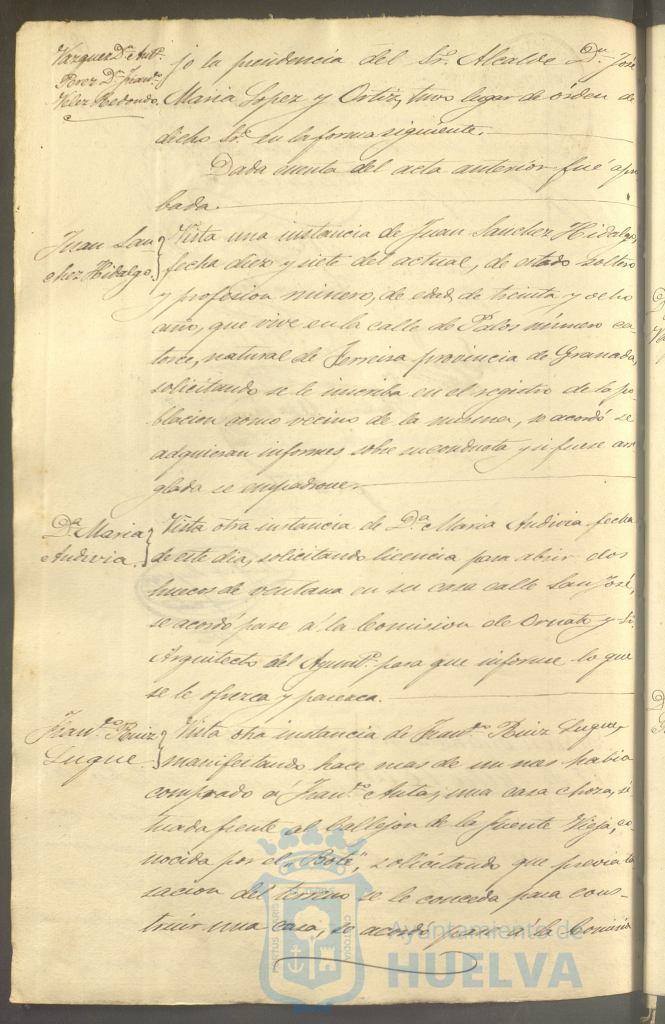 Vazquez Dn. Anto.
Perez Dn. Franco.
Velez Redondo.
jo la presidencia del Sr. Alcalde Dn. José
Maria Lopez y Ortiz, tuvo lugar de órden de
dicho Sr. en la forma siguiente.
Dada cuenta del acta anterior fué apro
bada.
Juan San
chez Hidalgo.
Vista una instancia de Juan Sanchez Hidalgo,
fecha diez y siete del actual, de estado soltero
y profesion minero, de edad de treinta y ocho
años, que vive en la calle de Palos número ca
torce, natural de Ferreira provincia de Granada,
solicitando se le inscriba en el registro de la po
blacion como vecino de la misma, se acordó se
adquieran informes sobre su conducta y si fuese arre
glada se empadrone.
Da. Maria
Andivia.
Vista otra instancia de Da. Maria Andivia fecha
de este dia, solicitando licencia para abrir dos
huecos de ventana en su casa calle San José,
se acordó pase á la Comision de Ornato y Sr.
Arquitecto del Ayunto. para que informe lo que
se le ofrezca y parezca.
Franco. Ruiz
Luque.
Vista otra instancia de Franco. Ruiz Luque,
manifestando hace mas de un mes habia
comprado a Franco. una casa choza, si
tuada frente al Callejon de la Fuente Vieja, co
nocida por el "Bote", solicitando que previa ta
sacion del terreno se le conceda para cons-
truir una casa, se acordó pase á la Comision
Ayuntamiento de
HUELVA